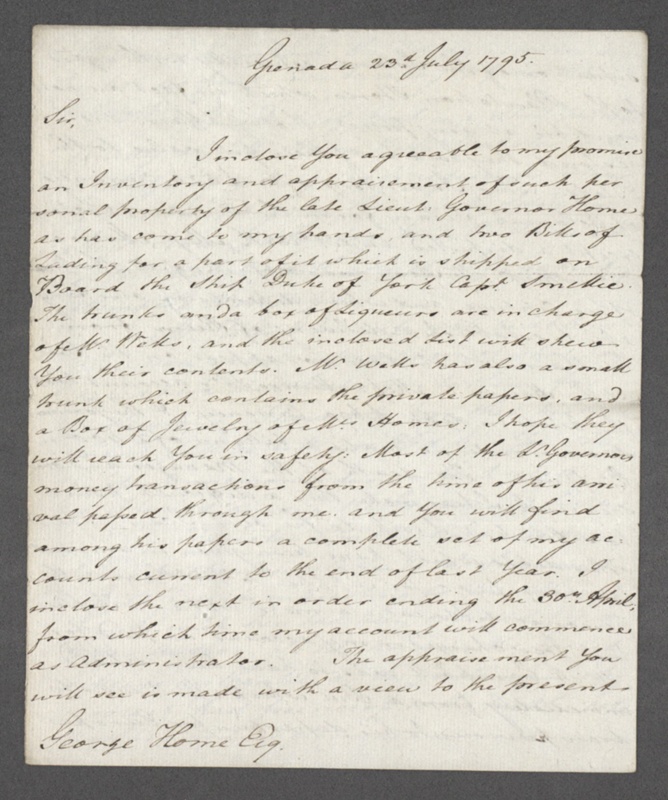 Grenada 23d July 1795.
Sir,
I inclose You agreeable to my promise
an Inventory and appraisement of such per
sonal property of the late Lieut. Governor Home
as has come to my hands, and two Bills of
Lading for a part of it which is shipped on
Board the Ship Duke of York Capt Smellie.
The trunks and a box of Liqueurs are in charge
of Mr. Wells, and the inclosed List will shew
You their contents. Mr. Wells has also a small
trunk which contains the private papers, and
a Box of Jewelry of Mrs Homes; I hope they
will reach You in safety: Most of the Lt. Governors
money transactions from the time of his arri
val passed through me and You will find
among his papers a complete set of my ac
counts current to the end of last Year. I
inclose the next in order ending the 30th April,
from which time my account will commence
as Administrator. The appraisement You
will see is made with a view to the present
George Home Esq.